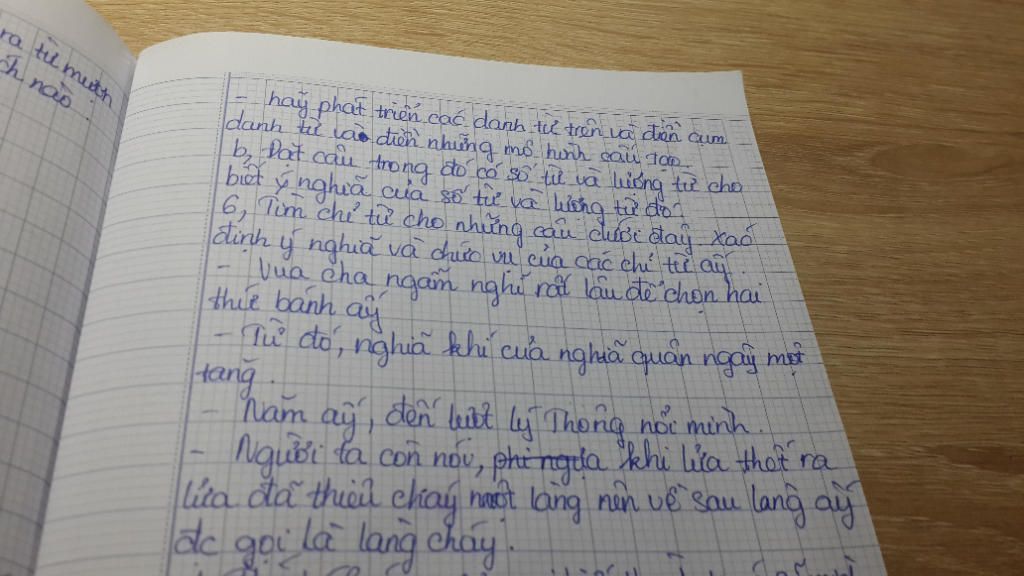 ra từ mượn
nào
- hãy phát triển các danh từ trên và điền cụm
danh từ vào điền những mô hình cấu tạo
b, Đặt câu trong đó có số từ và lượng từ cho
biết ý nghĩa của số từ và lượng từ đó
6, Tìm chỉ từ cho những câu dưới đây. xác
định ý nghĩa và chức vụ của các chỉ từ ấy.
- Vua cha ngẫm nghĩ rất lâu để chọn hai
thức bánh ấy
- Từ đó, nghĩa khí của nghĩa quân ngày một
tăng.
- Năm ấy, đến lượt lý Thông nổi mình.
- Người ta còn nói, khi lửa thốt ra
lửa đã thiêu cháy một làng nên về sau làng ấy
đc gọi là làng cháy.